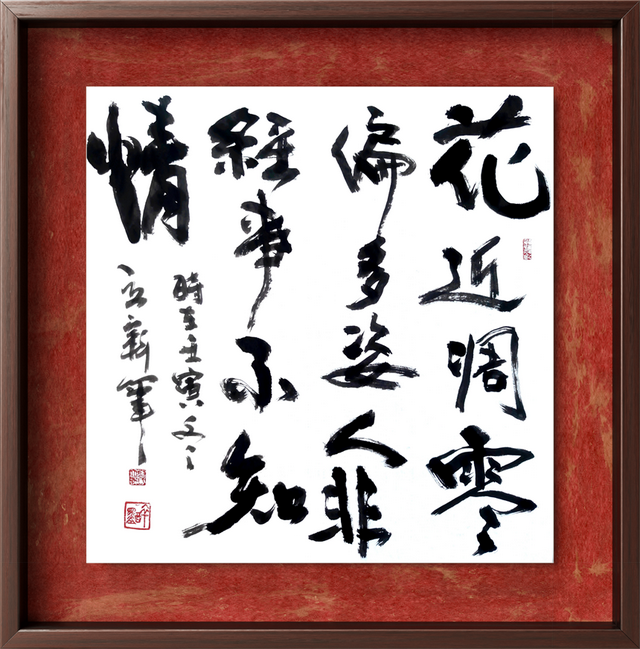 花近凋零
偏多姿人非
經事不知
情
時在壬寅冬
立新筆